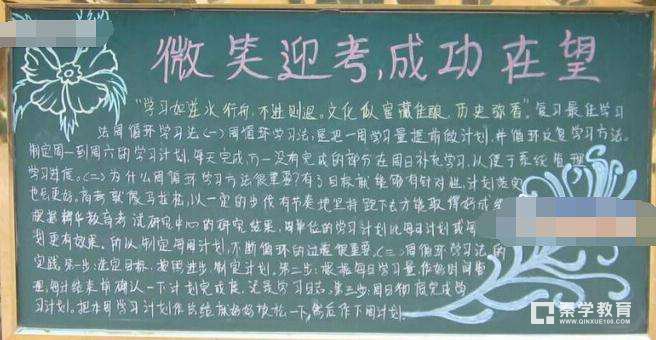 微笑迎考,成功在望
"学习如逆水行舟,不进则退。文化似窖藏佳酿,历史弥香"。复习最佳学习
法周循环学习法(一)周循环学习法:是把一周学习量提前做计划,并循环反复学习方法。
制定周一到周六的学习计划,每天完成,万一没有完成的部分在周日补充学习,从便于系统管理
学习进度。(二)为什么周循环学习方法很重要?有了目标就能够有针对性,计划
也已更好。高考就像马拉松,以一定的步伐有节奏地坚持跑下去才能取得好成
教育考试研究中心的研究结果,周单位的学习计划比每日计划或每
划更有效果。所以制定每周计划,不断循环的过程很重要。(三)周循环学习法的
实践。第一步:选定目标,按照进步制定计划。第二步:根据每日学习量作好时间管
理,每日结束前确认一下计划完成度,记录学习日志。第三步:周日彻底完成学
习计划。把本周学习计划作总结做好好放松一下,然后作下周计划。
秦学教育
WWW.QINXUE100.COM